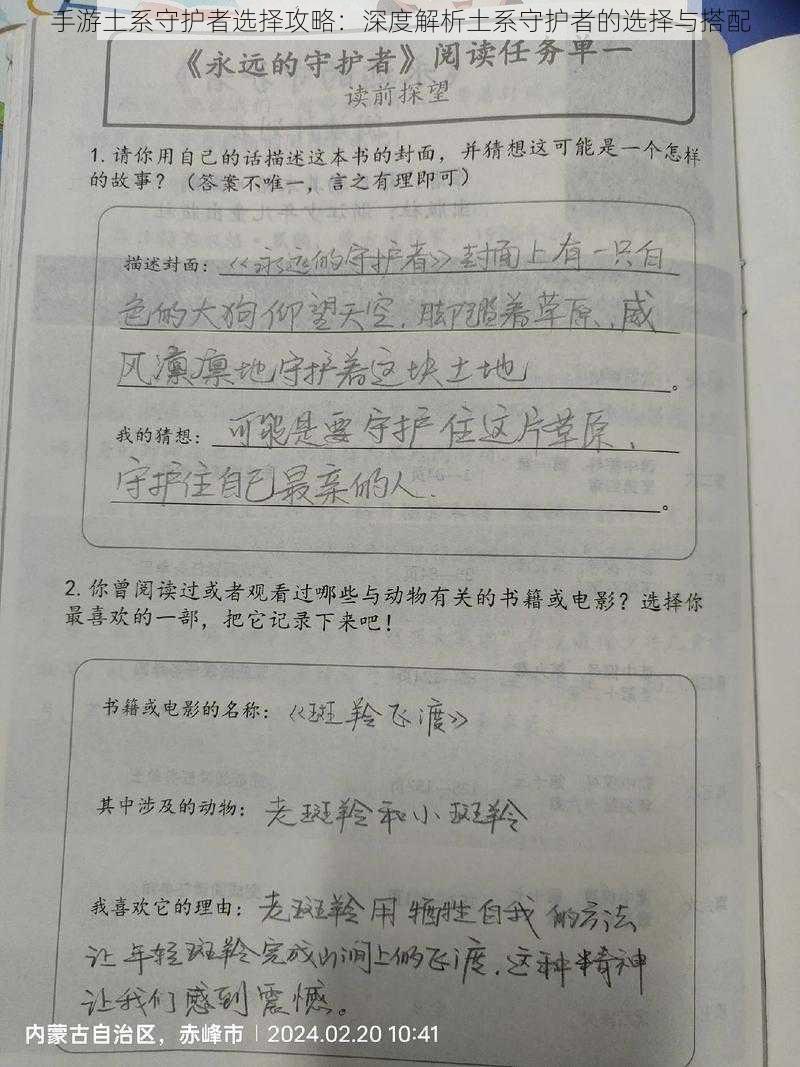 手游土系守护者选择攻略：深度解析土系守护者的选择与搭配
《永远的守护者》阅读任务单一
读前探望
1. 请你用自己的话描述这本书的封面，并猜想这可能是一个怎样
的故事？（答案不唯一，言之有理即可）
描述封面：《永远的守护者》封面上有一只白
色的大狗仰望天空，脚踏着草原，威
风凛凛地守护着这块土地。
我的猜想：可能是要守护住这片草原，
守护住自己最亲的人。
2. 你曾阅读过或者观看过哪些与动物有关的书籍或电影？选择你
最喜欢的一部，把它记录下来吧！
书籍或电影的名称：《斑羚飞渡》
其中涉及的动物：老斑羚和小斑羚
我喜欢它的理由：老斑羚用牺牲自我的方法
让年轻斑羚完成山涧上的飞渡，这种精神
让我们感到震憾。
内蒙古自治区，赤峰市 | 2024.02.20 10:41